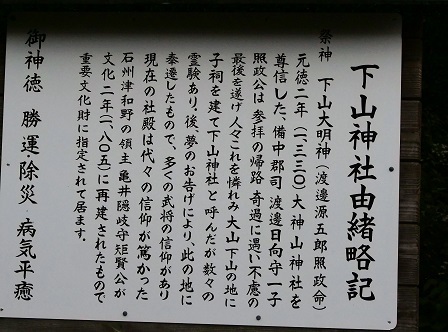 下山神社由緒略記
祭神 下山大明神(渡邊源五郎照政命)
元徳二年(一、三三〇)大神山神社を
尊信した、備中郡司渡邊日向守一子
照政公は参拝の帰路 奇過に遇い不慮の
最後を遂げ人々これを憐れみ大山下山の地に
子祠を建て下山神社と呼んだが数々の
霊験あり。後、夢のお告げにより、此の地に
奉遷したもので、多くの武将の信仰があり
現在の社殿は代々の信仰が篤かった
石州津和野の領主 亀井隠岐守矩賢公が
文化二年(一八〇五)に再建されたもので
重要文化財に指定されて居ます。
御神徳 勝運除災 病気平癒